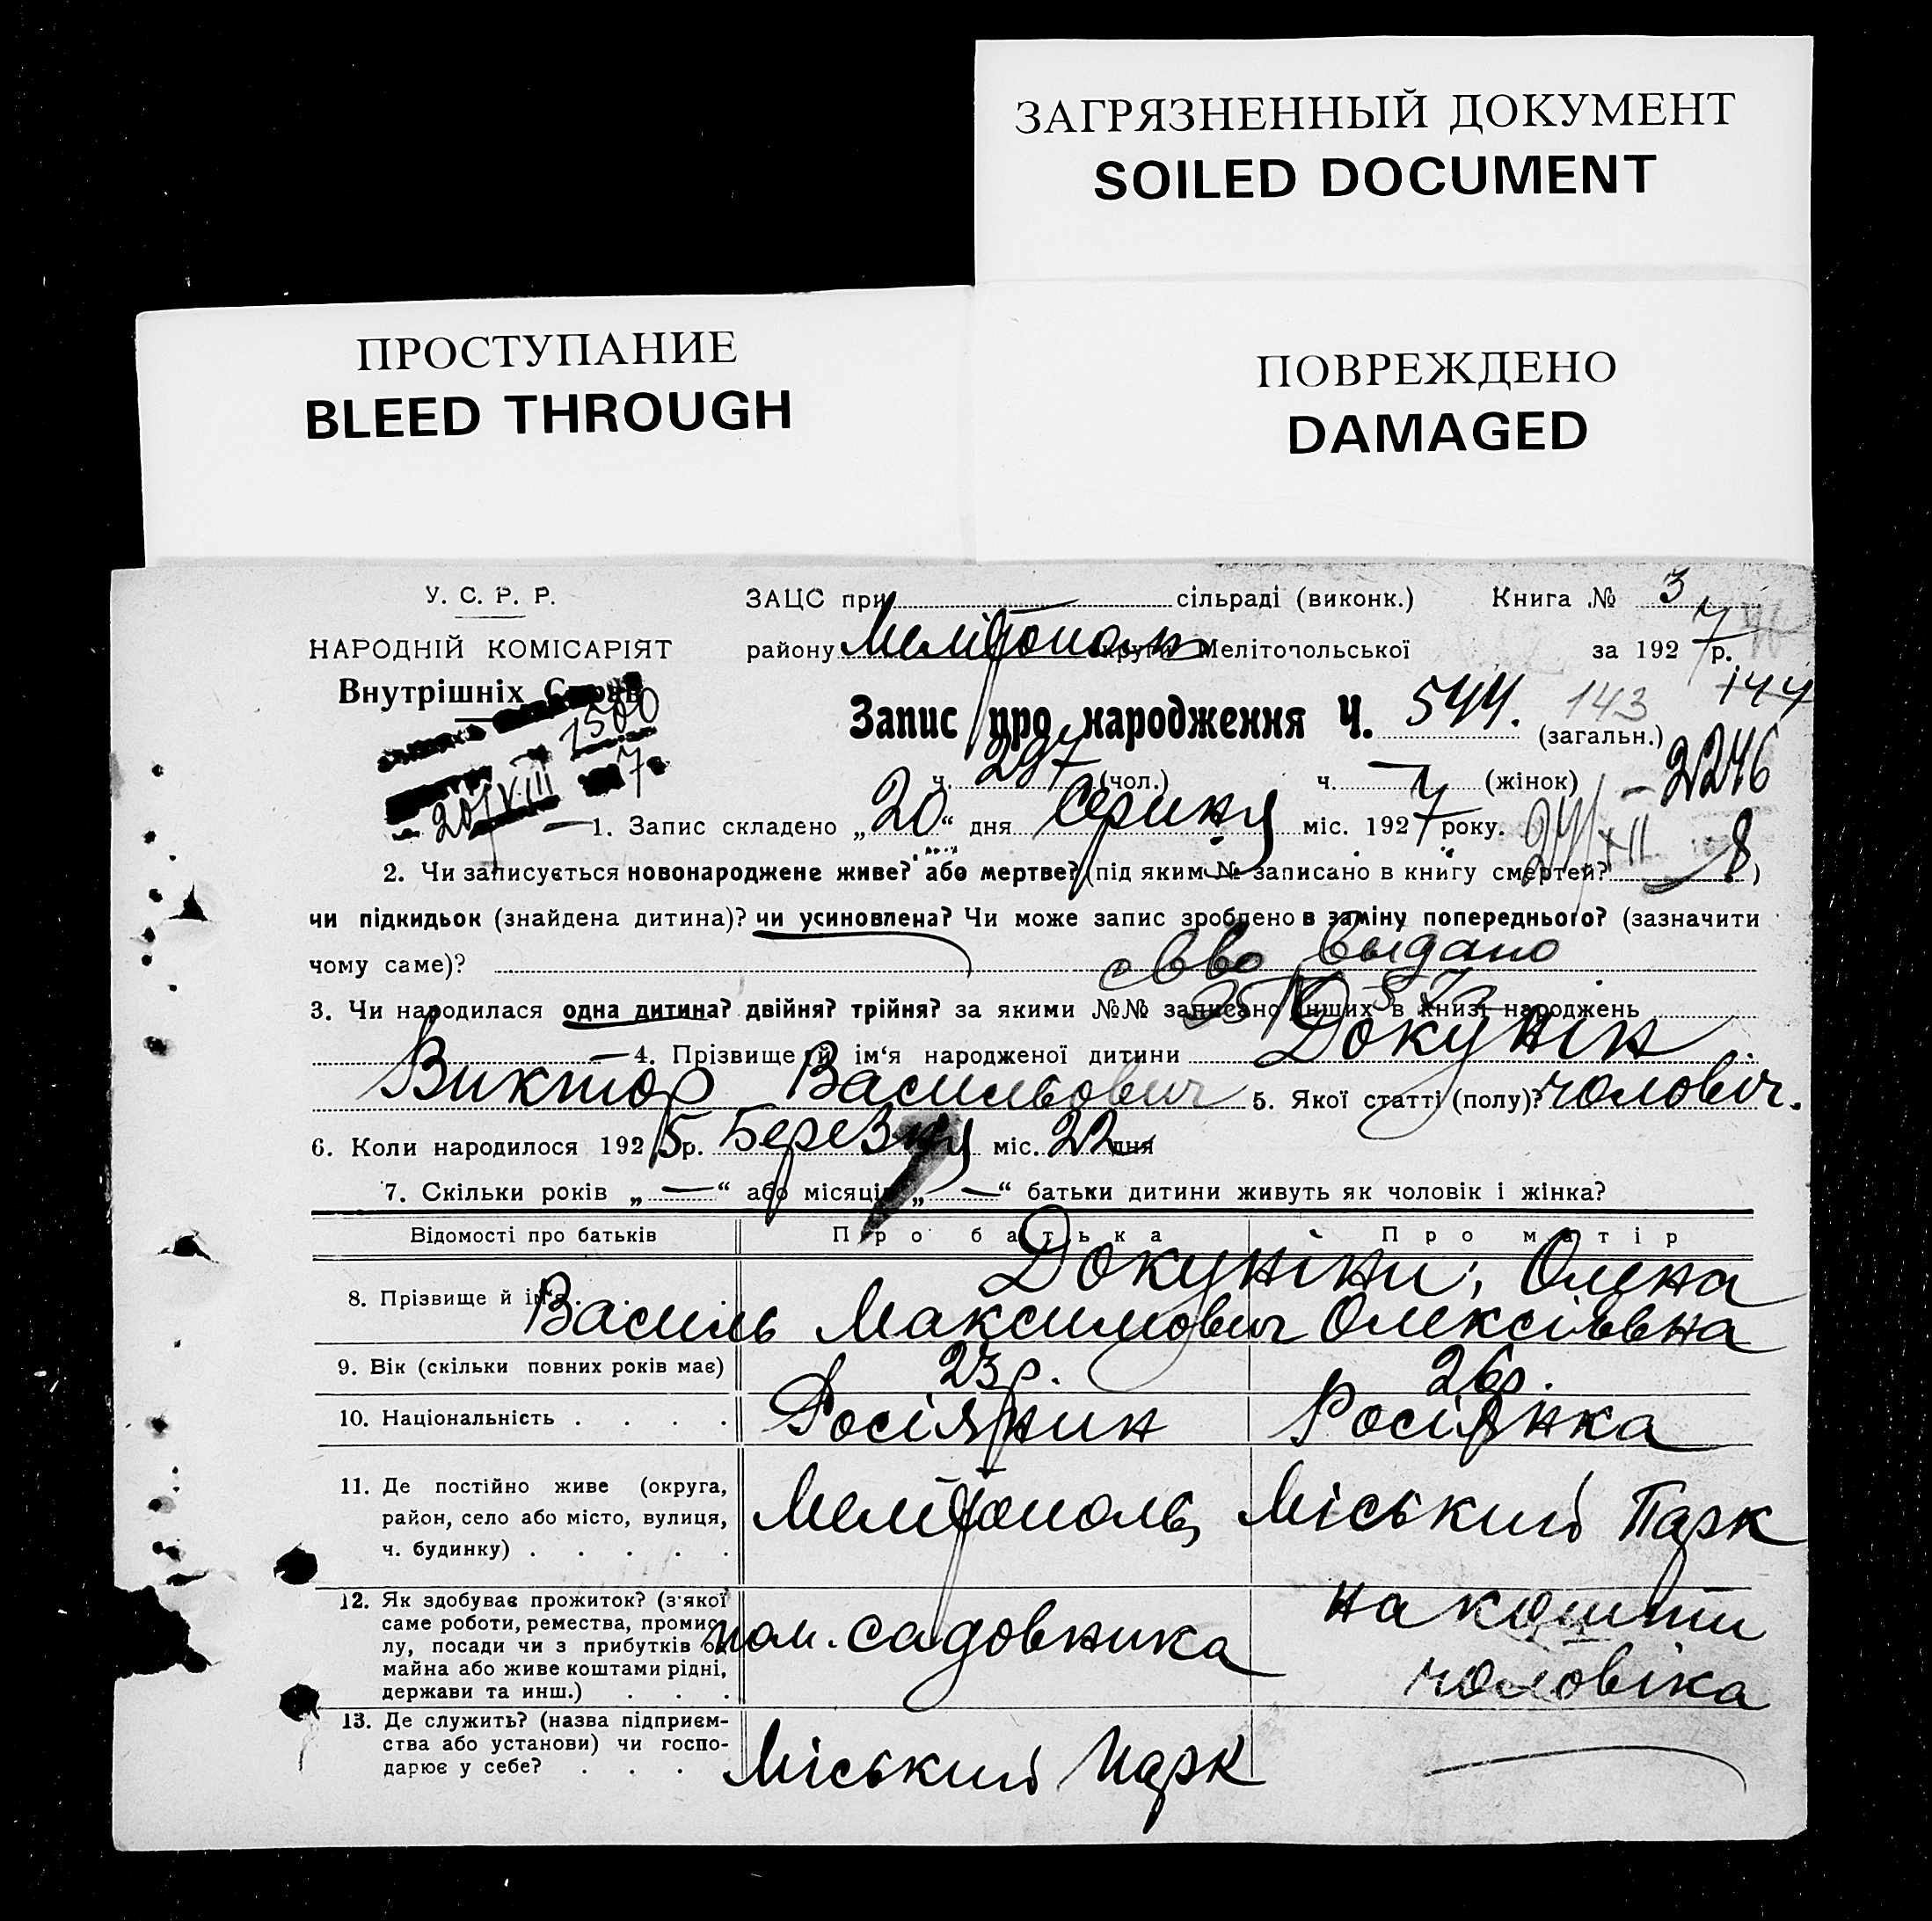 ЗАГРЯЗНЕННЫЙ ДОКУМЕНТ
SOILED DOCUMENT
ПРОСТУПАНИЕ
BLEED THROUGH
ПОВРЕЖДЕНО
DAMAGED
У. С. Р. Р.
НАРОДНІЙ КОМІСАРІЯТ
Внутрішніх Справ
1500
7
20/VIII
ЗАЦС при сільраді (виконк.) Книга № 3
району Мелітополь округи Мелітопольської за 1927 р.
144
Запис про народження Ч. 544. 143 (загальн.)
ч. 297 (чол.) ч. — (жінок) 2246
1. Запис складено „20“ дня Серпня міс. 1927 року. 24/XII 8
2. Чи записується новонароджене живе? або мертве? (під яким № записано в книгу смертей? )
чи підкидьок (знайдена дитина)? чи усиновлена? Чи може запис зроблено в заміну попереднього? (зазначити
чому саме)? выдано
3. Чи народилася одна дитина? двійня? трійня? за якими №№ записано інших в книзі народжень
4. Прізвище й ім‘я народженої дитини Докунін
Виктор Васильович 5. Якої статті (полу)? чоловіч.
6. Коли народилося 1925 р. Березня міс. 22 дня
7. Скільки років „—“ або місяців „—“ батьки дитини живуть як чоловік і жінка?
Відомості про батьків Про батька Про матір
8. Прізвище й ім‘я . Докуніни; Олена
Василь Максимович Олексіївна
9. Вік (скільки повних років має) 23 р. 26 р.
10. Національність . . . . Росіянин Росіянка
11. Де постійно живе (округа,
район, село або місто, вулиця,
ч. будинку) . . . . .
Мелітополь, Міський Парк
12. Як здобуває прожиток? (з якої
саме роботи, ремества, промис-
лу, посади чи з прибутків од
майна або живе коштами рідні,
держави та инш.) . . .
пом. садовника
на кошти
чоловіка
13. Де служить? (назва підприєм-
ства або установи) чи госпо-
дарює у себе? . . . .
Міський Парк